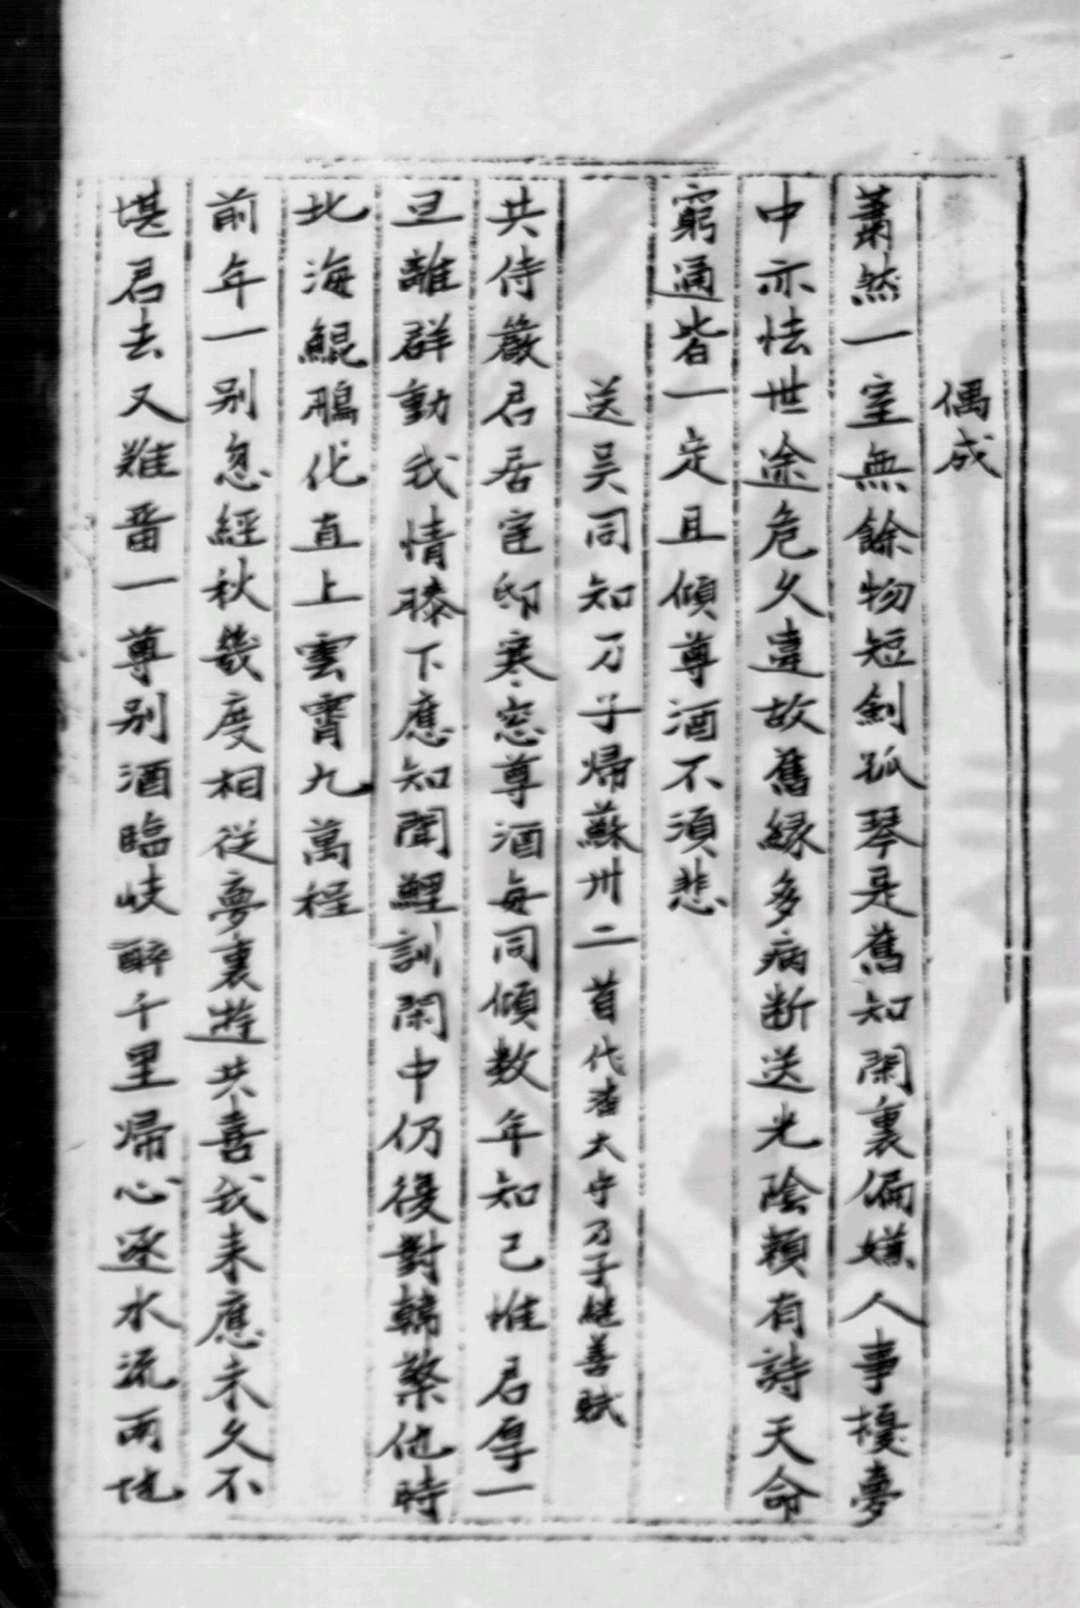 偶成
蕭然一室無餘物短劍孤琴是舊知閑裏偏嫌人事擾夢
中亦怯世途危久違故舊緣多病断送光陰賴有詩天命
窮通皆一定且傾尊酒不須悲
送吴同知乃子歸蘇州二首代潘太守乃子継善賦
共侍嚴君居宦邸寒窓尊酒每同傾数年知己惟君厚一
旦離群動我情膝下應知聞鯉訓閑中仍復對韓檠他時
北海鯤鵬化直上雲霄九萬程
前年一别忽經秋幾度相從夢裏遊共喜我来應未久不
堪君去又難畱一尊别酒臨岐醉千里歸心逐水流兩